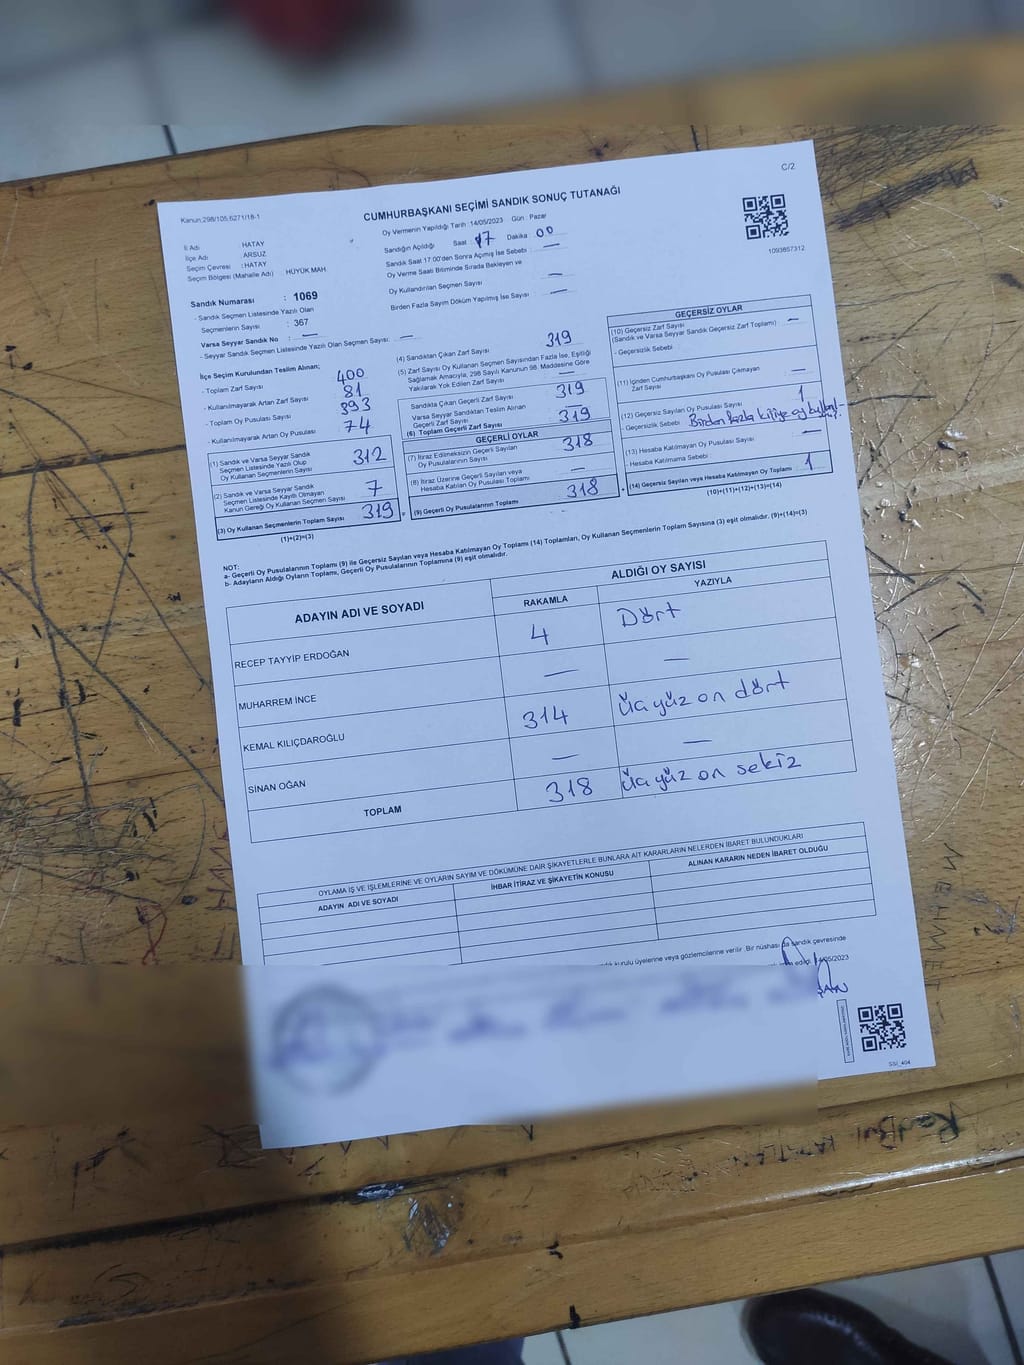 C/2
Kanun:298/105;6271/18-1
CUMHURBAŞKANI SEÇİMİ SANDIK SONUÇ TUTANAĞI
Oy Vermenin Yapıldığı Tarih :14/05/2023 Gün : Pazar
İl Adı : HATAY
İlçe Adı : ARSUZ
Seçim Çevresi : HATAY
Seçim Bölgesi (Mahalle Adı) : HÜYÜK MAH.
Sandığın Açıldığı Saat : 17 Dakika 00
Sandık Saat 17:00'den Sonra Açımış İse Sebebi : —
Oy Verme Saati Bitiminde Sırada Bekleyen ve
Oy Kullandırılan Seçmen Sayısı —
Birden Fazla Sayım Döküm Yapılmış İse Sayısı —
1093857312
Sandık Numarası : 1069
- Sandık Seçmen Listesinde Yazılı Olan
Seçmenlerin Sayısı : 367
Varsa Seyyar Sandık No : —
- Seyyar Sandık Seçmen Listesinde Yazılı Olan Seçmen Sayısı: —
İlçe Seçim Kurulundan Teslim Alınan;
- Toplam Zarf Sayısı 400
- Kullanılmayarak Artan Zarf Sayısı 81
- Toplam Oy Pusulası Sayısı 393
- Kullanılmayarak Artan Oy Pusulası 74
(1) Sandık ve Varsa Seyyar Sandık
Seçmen Listesinde Yazılı Olup
Oy Kullanan Seçmenlerin Sayısı 312
(2) Sandık ve Varsa Seyyar Sandık
Seçmen Listesinde Kayıtlı Olmayan
Kanun Gereği Oy Kullanan Seçmen Sayısı 7
(3) Oy Kullanan Seçmenlerin Toplam Sayısı 319
(1)+(2)=(3)
(4) Sandıktan Çıkan Zarf Sayısı 319
(5) Zarf Sayısı Oy Kullanan Seçmen Sayısından Fazla İse, Eşitliği
Sağlamak Amacıyla, 298 Sayılı Kanunun 98. Maddesine Göre
Yakılarak Yok Edilen Zarf Sayısı —
Sandıkta Çıkan Geçerli Zarf Sayısı 319
Varsa Seyyar Sandıktan Teslim Alınan
Geçerli Zarf Sayısı
(6) Toplam Geçerli Zarf Sayısı 319
GEÇERLİ OYLAR
(7) İtiraz Edilmeksizin Geçerli Sayılan
Oy Pusulalarının Sayısı 318
(8) İtiraz Üzerine Geçerli Sayılan veya
Hesaba Katılan Oy Pusulası Toplamı —
(9) Geçerli Oy Pusulalarının Toplamı 318
GEÇERSİZ OYLAR
(10) Geçersiz Zarf Sayısı
(Sandık ve Varsa Seyyar Sandık Geçersiz Zarf Toplamı) —
- Geçersizlik Sebebi :
(11) İçinden Cumhurbaşkanı Oy Pusulası Çıkmayan
Zarf Sayısı —
(12) Geçersiz Sayılan Oy Pusulası Sayısı 1
- Geçersizlik Sebebi : Birden fazla kişiye oy
(13) Hesaba Katılmayan Oy Pusulası Sayısı —
- Hesaba Katılmama Sebebi :
(14) Geçersiz Sayılan veya Hesaba Katılmayan Oy Toplamı 1
(10)+(11)+(12)+(13)=(14)
NOT:
a- Geçerli Oy Pusulalarının Toplamı (9) ile Geçersiz Sayılan veya Hesaba Katılmayan Oy Toplamı (14) Toplamları, Oy Kullanan Seçmenlerin Toplam Sayısına (3) eşit olmalıdır. (9)+(14)=(3)
b- Adayların Aldığı Oyların Toplamı, Geçerli Oy Pusulalarının Toplamına (9) eşit olmalıdır.
ADAYIN ADI VE SOYADI ALDIĞI OY SAYISI
RAKAMLA YAZIYLA
RECEP TAYYİP ERDOĞAN 4 Dört
MUHARREM İNCE — —
KEMAL KILIÇDAROĞLU 314 Üçyüz on dört
SİNAN OĞAN — —
TOPLAM 318 Üçyüz on sekiz
OYLAMA İŞ VE İŞLEMLERİNE VE OYLARIN SAYIM VE DÖKÜMÜNE DAİR ŞİKAYETLERLE BUNLARA AİT KARARLARIN NELERDEN İBARET BULUNDUKLARI
ADAYIN ADI VE SOYADI İHBAR İTİRAZ VE ŞİKAYETİN KONUSU ALINAN KARARIN NEDEN İBARET OLDUĞU
kurulu üyelerine veya gözlemcilerine verilir. Bir nüshası da sandık çevresinde
edildi. 14/05/2023
SSI_404